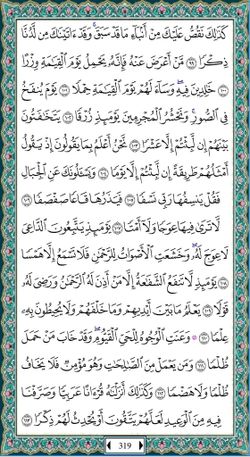 كَذَٰلِكَ نَقُصُّ عَلَيْكَ مِنْ أَنۢبَآءِ مَا قَدْ سَبَقَ ۚ وَقَدْ ءَاتَيْنَٰكَ مِن لَّدُنَّا
ذِكْرًا ٩٩ مَّنْ أَعْرَضَ عَنْهُ فَإِنَّهُۥ يَحْمِلُ يَوْمَ ٱلْقِيَٰمَةِ وِزْرًا
١٠٠ خَٰلِدِينَ فِيهِ ۖ وَسَآءَ لَهُمْ يَوْمَ ٱلْقِيَٰمَةِ حِمْلًا ١٠١ يَوْمَ يُنفَخُ
فِى ٱلصُّورِ ۚ وَنَحْشُرُ ٱلْمُجْرِمِينَ يَوْمَئِذٍ زُرْقًا ١٠٢ يَتَخَٰفَتُونَ
بَيْنَهُمْ إِن لَّبِثْتُمْ إِلَّا عَشْرًا ١٠٣ نَّحْنُ أَعْلَمُ بِمَا يَقُولُونَ إِذْ يَقُولُ
أَمْثَلُهُمْ طَرِيقَةً إِن لَّبِثْتُمْ إِلَّا يَوْمًا ١٠٤ وَيَسْـَٔلُونَكَ عَنِ ٱلْجِبَالِ
فَقُلْ يَنسِفُهَا رَبِّى نَسْفًا ١٠٥ فَيَذَرُهَا قَاعًا صَفْصَفًا ١٠٦
لَّا تَرَىٰ فِيهَا عِوَجًا وَلَآ أَمْتًا ١٠٧ يَوْمَئِذٍ يَتَّبِعُونَ ٱلدَّاعِىَ
لَا عِوَجَ لَهُۥ ۖ وَخَشَعَتِ ٱلْأَصْوَاتُ لِلرَّحْمَٰنِ فَلَا تَسْمَعُ إِلَّا هَمْسًا
١٠٨ يَوْمَئِذٍ لَّا تَنفَعُ ٱلشَّفَٰعَةُ إِلَّا مَنْ أَذِنَ لَهُ ٱلرَّحْمَٰنُ وَرَضِىَ لَهُۥ
قَوْلًا ١٠٩ يَعْلَمُ مَا بَيْنَ أَيْدِيهِمْ وَمَا خَلْفَهُمْ وَلَا يُحِيطُونَ بِهِۦ
عِلْمًا ١١٠ ۞ وَعَنَتِ ٱلْوُجُوهُ لِلْحَىِّ ٱلْقَيُّومِ ۖ وَقَدْ خَابَ مَنْ حَمَلَ
ظُلْمًا ١١١ وَمَن يَعْمَلْ مِنَ ٱلصَّٰلِحَٰتِ وَهُوَ مُؤْمِنٌ فَلَا يَخَافُ
ظُلْمًا وَلَا هَضْمًا ١١٢ وَكَذَٰلِكَ أَنزَلْنَٰهُ قُرْءَانًا عَرَبِيًّا وَصَرَّفْنَا
فِيهِ مِنَ ٱلْوَعِيدِ لَعَلَّهُمْ يَتَّقُونَ أَوْ يُحْدِثُ لَهُمْ ذِكْرًا ١١٣
319